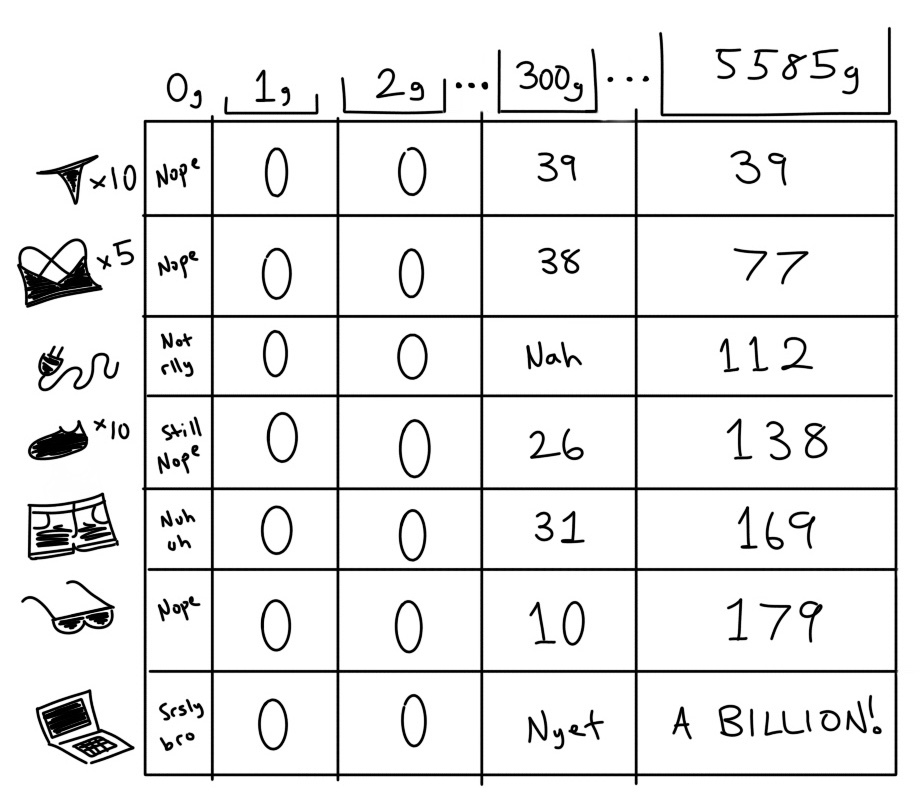 0g 1g 2g ... 300g ... 5585g
x10 Nope 0 0 39 39
x5 Nope 0 0 38 77
Not
rlly 0 0 Nah 112
x10 Still
Nope 0 0 26 138
Nuh
uh 0 0 31 169
Nope 0 0 10 179
Srsly
bro 0 0 Nyet A BILLION!